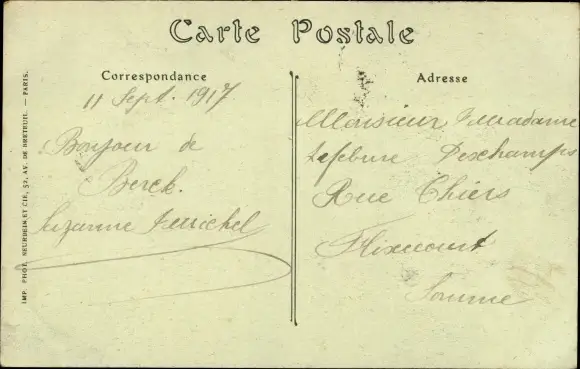 Carte Postale
Correspondance
11 Sept. 1917
Bonjour de
Berck.
Suzanne
Adresse
Monsieur, Madame
Lefebure Deschamps
Rue Thiers
Flixecourt
Somme
IMP. PHOT. NEURDEIN ET CIE, 52, AV. DE BRETEUIL. — PARIS.